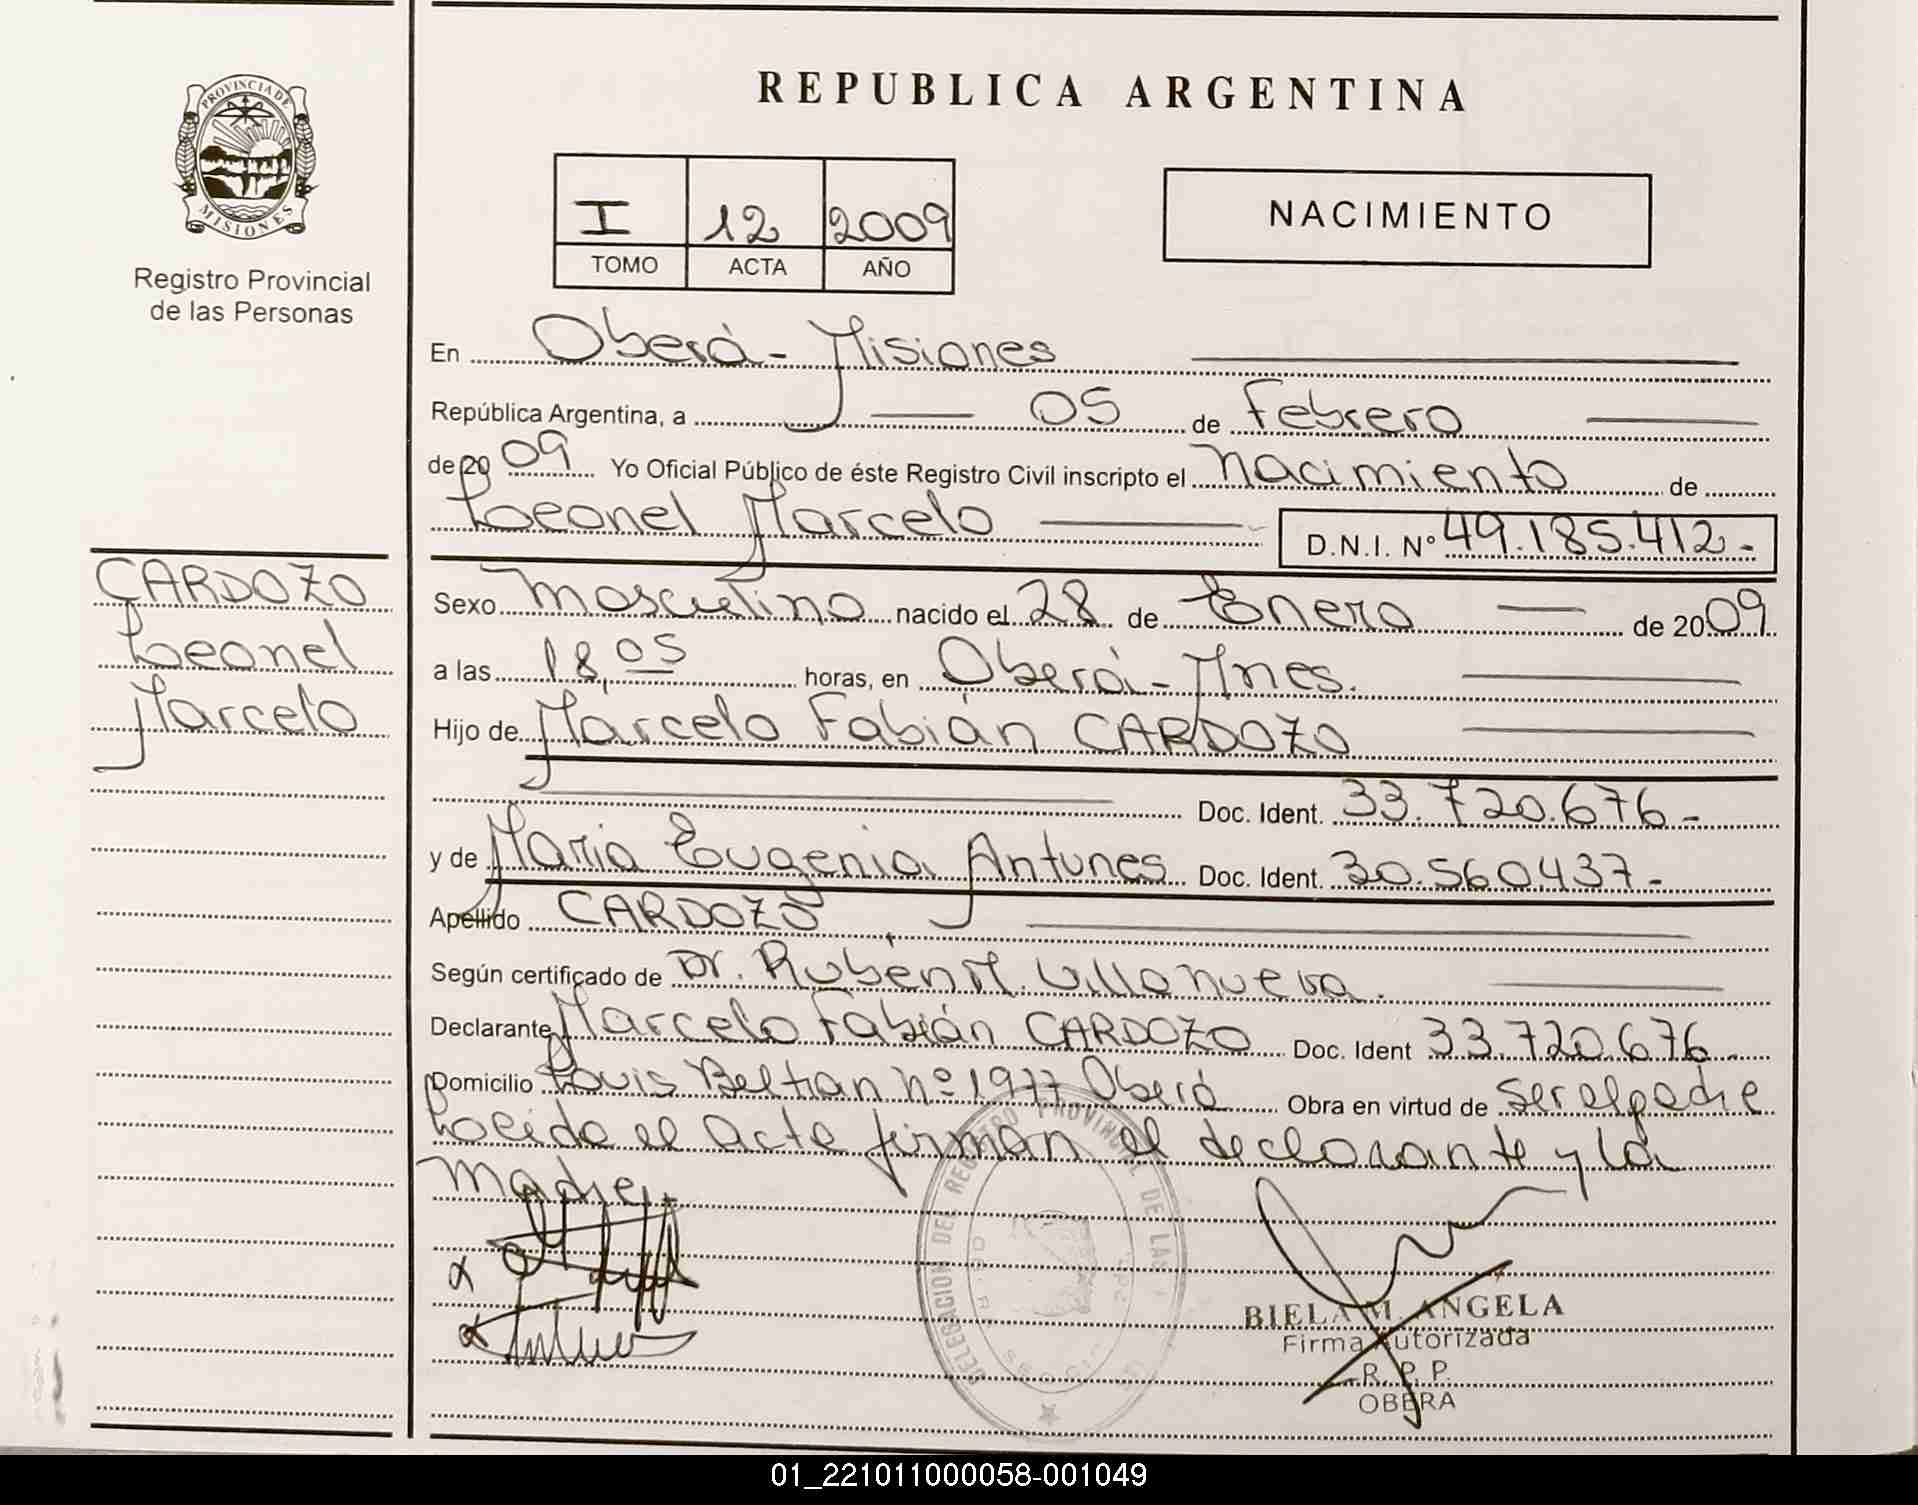 PROVINCIA DE
MISIONES
Registro Provincial
de las Personas
CARDOZO
Leonel
Marcelo
REPUBLICA ARGENTINA
I 12 2009
TOMO ACTA AÑO
NACIMIENTO
En Oberá - Misiones
República Argentina, a 05 de Febrero
de 20 09 Yo Oficial Público de éste Registro Civil inscripto el Nacimiento de
Leonel Marcelo D.N.I. Nº 49.185.412.-
Sexo Masculino nacido el 28 de Enero de 20 09
a las 18,05 horas, en Oberá - Mnes.
Hijo de Marcelo Fabián CARDOZO
Doc. Ident. 33.720.676-
y de María Eugenia Antunes Doc. Ident. 30.560437-
Apellido CARDOZO
Según certificado de Dr. Rubén M. Villanueva.
Declarante Marcelo Fabián CARDOZO Doc. Ident 33.720.676-
Domicilio Louis Beltran nº 1977 Oberá Obra en virtud de ser el padre
Leída el acta firman el declarante y la
madre
DELEGACION DEL REGISTRO PROVINCIAL DE LAS
BIELA M. ANGELA
Firma Autorizada
R. P. P.
OBERA
01_221011000058-001049